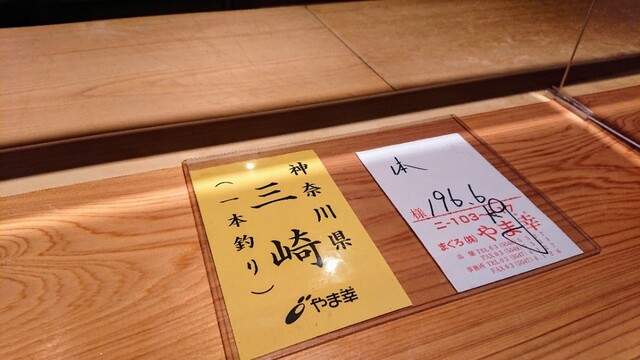 神奈川県
三崎
(一本釣り)
やま幸
本
196.6
様
ニ-103
まぐろ(株)やま幸